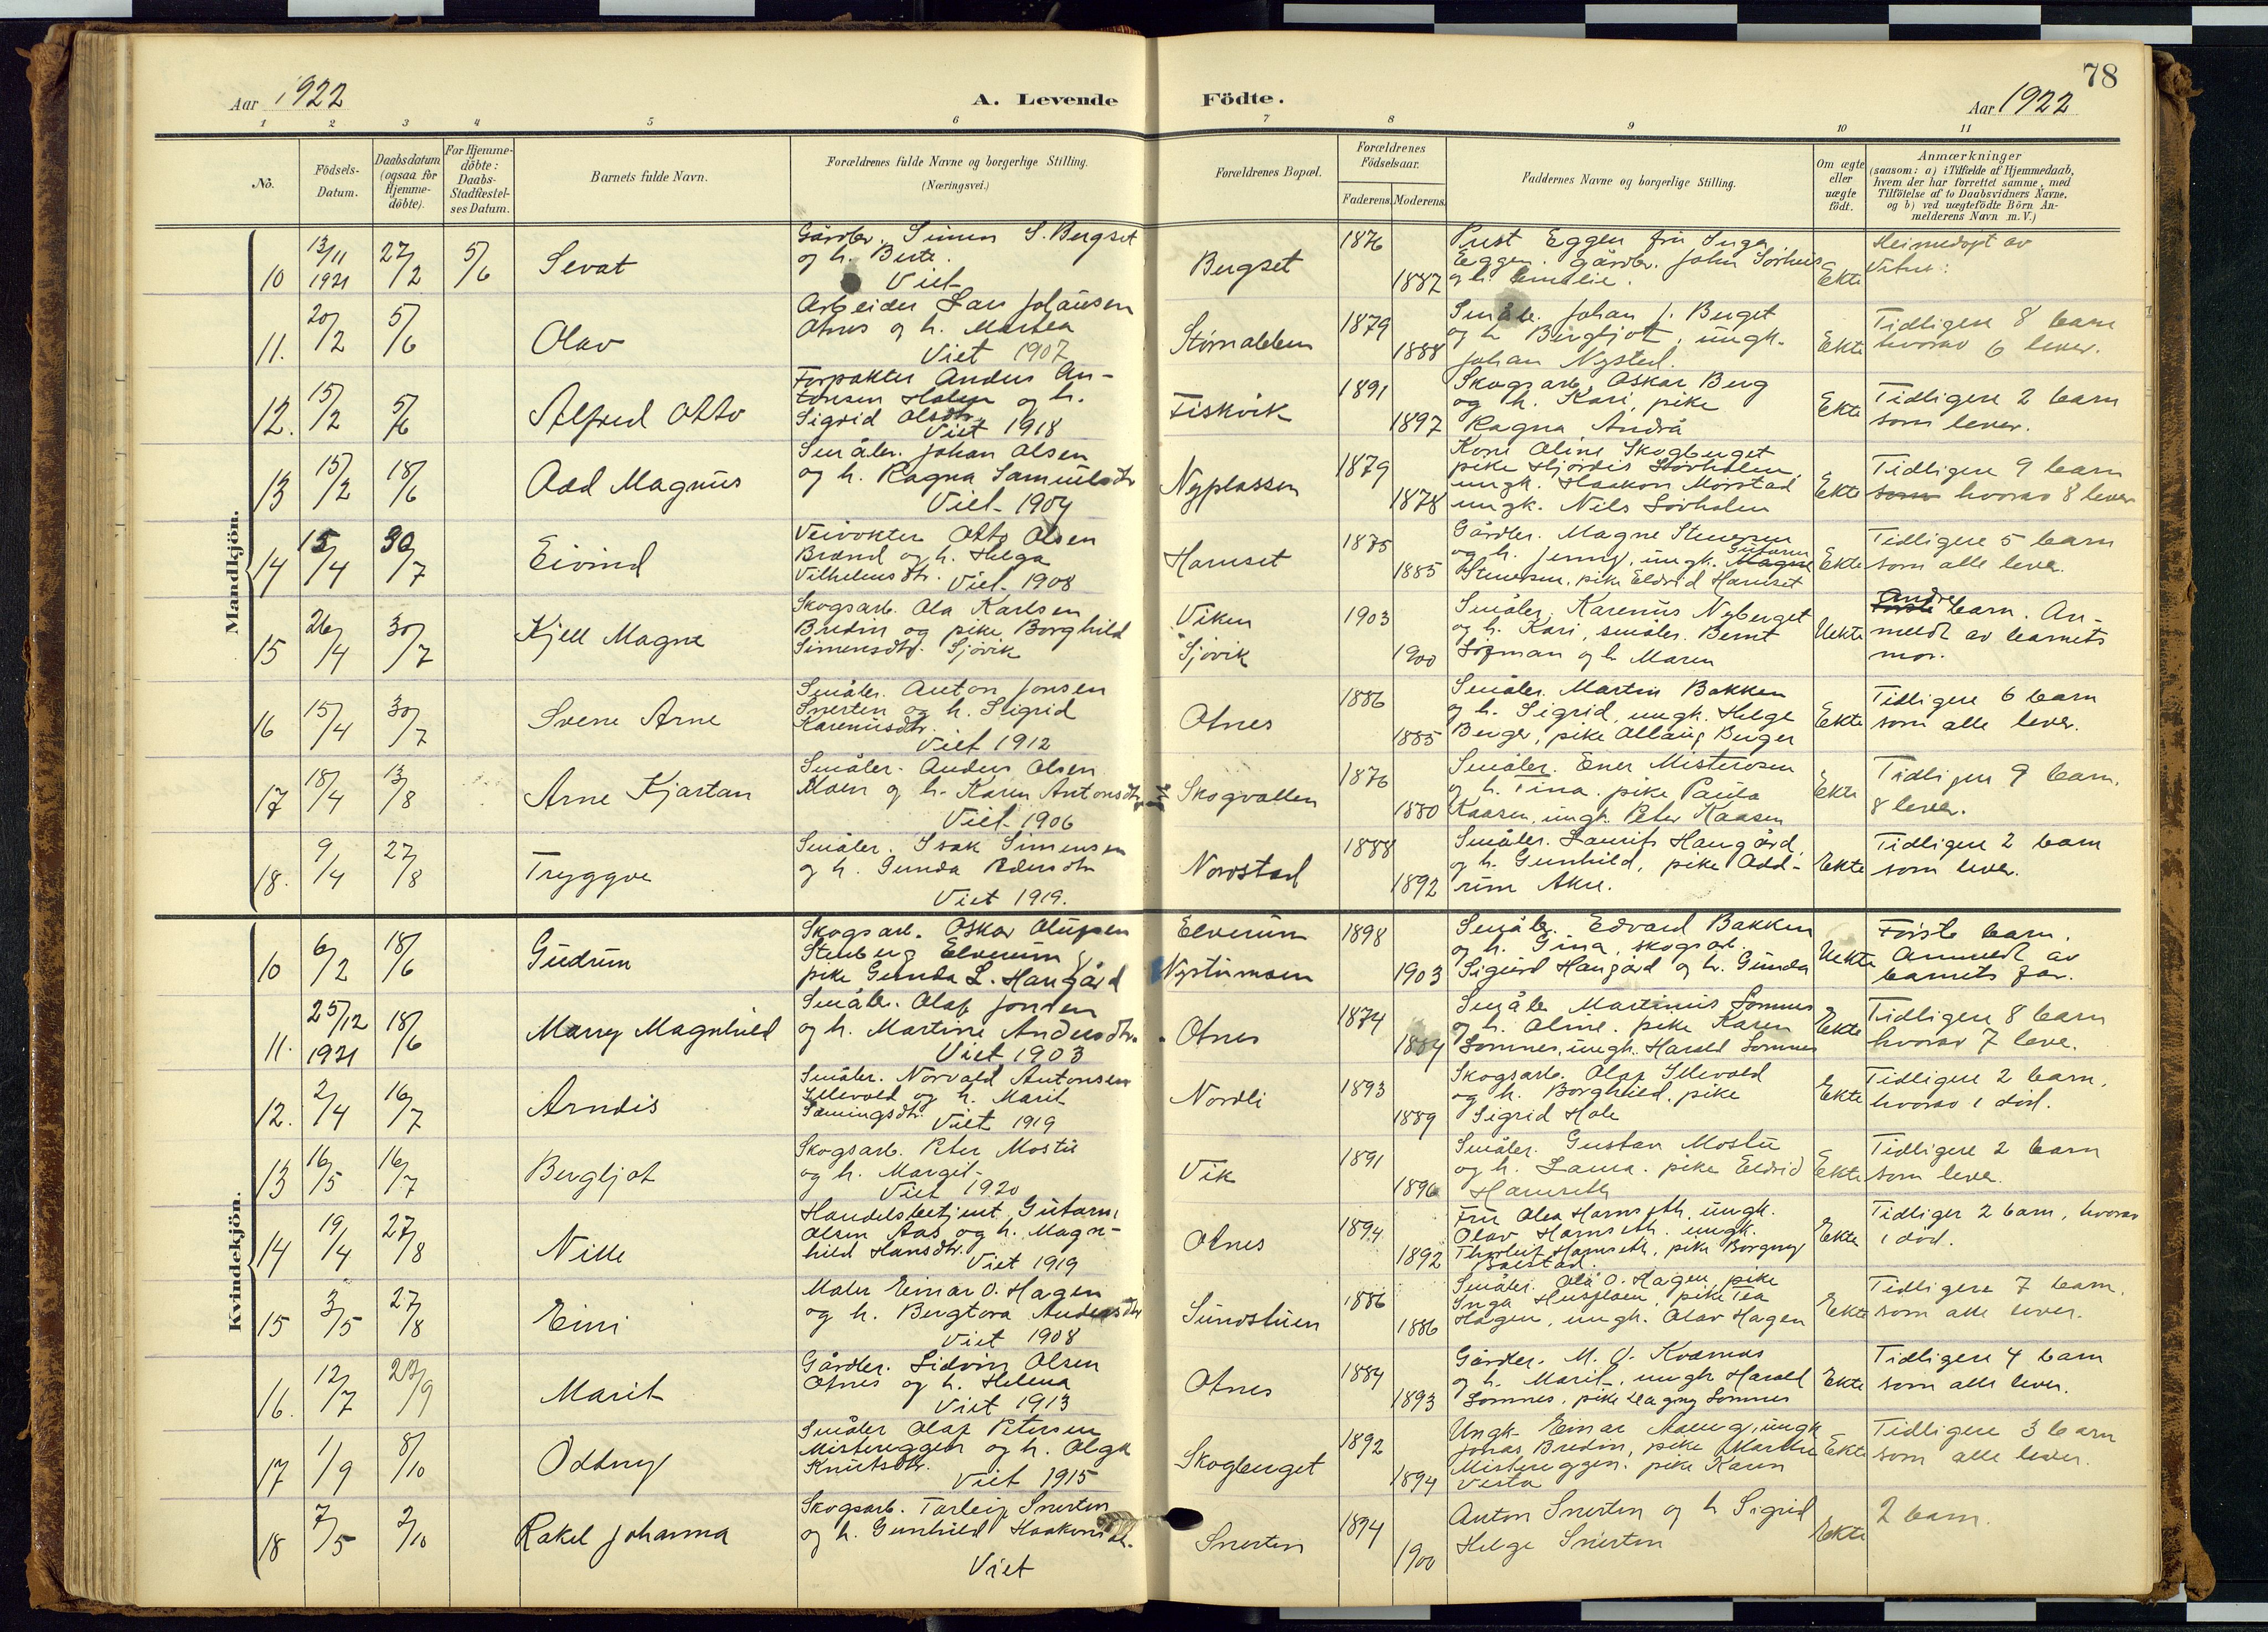 78
Aar 1922
A. Levende Födte.
Aar 1922
1 2 3 4 5 6 7 8 9 10 11
No.
Födsels-Datum.
Daabsdatum (ogsaa for Hjemme-döbte).
For Hjemme-döbte: Daabs-Stadfæstel-ses Datum.
Barnets fulde Navn.
Forældrenes fulde Navne og borgerlige Stilling.
(Næringsvei.)
Forældrenes Bopæl.
Forældrenes Födselsaar.
Faderens. Moderens.
Faddernes Navne og borgerlige Stilling.
Om ægte eller uægte födt.
Anmærkninger
(saasom: a) i Tilfælde af Hjemmedaab,
hvem der har forrettet samme, med
Tilföielse af to Daabsvidners Navne,
og b) ved uægtefödte Börn An-
melderens Navn m. V.)
Mandkjön.
10 13/11 1921 27/2 5/6 Sevat
Gårdbr. Simen S. Bergset
og h. Berte.
Viet
Bergset 1876 1887
Prest Eggen fru Inga
Eggen. Gårdbr. John
og h. Emelie.
Ekte
Heimedøpt av
11. 20/2 5/6 Olav
Arbeider Lars Johansen
Otnes og h. Marthea
Viet 1907
1879 1888
Småbr. Johan J. Berget
og h. Bergljot, ungk.
Johan Nysted.
Ekte
Tidligere 8 barn
hvorav 6 lever.
12. 15/2 5/6 Alfred Otto
Forpakter Anders An-
tonsen Holen og h.
Sigrid Olsdtr.
Viet 1918
Fiskvik 1891 1897
Skogsarb. Oskar Berg
og h. Kari, pike
Ragna Andrå
Ekte
Tidligere 2 barn
som lever.
13 15/2 18/6 Odd Magnus
Småbr. Johan Olsen
og h. Ragna Samuelsdtr
Viet 1904
Nyplassen 1879 1878
Kone Oline Skogberget
pike Hjördis Lövholen,
ungk. Haakon Morstad
ungk. Nils Lövholen
Ekte
Tidligere 9 barn
som hvorav 8 lever
14 15/4 30/7 Eivind
Veivokter Otto Olsen
Brænd og h. Helga
Vilhelmsdtr. Viet 1908
Harnset 1875 1885
Gårdbr. Magne Stenersen
og h. Jenny, ungk. Magne Gutorm
Stenersen, pike Eldrid Harnset
Ekte
Tidligere 5 barn
som alle lever.
15 26/4 30/7 Kjell Magne
Skogsarb. Ola Karlsen
Bredin og pike Borghild
Simensdtr. Sjövik
Viken
Sjövik 1903 1900
Småbr. Karenus Nyberget
og h. Kari, småbr. Bernt
og h. Maren
Uekte
Første Andre barn. An-
meldt av barnets
mor.
16 15/4 30/7 Svene Arne
Småbr. Anton Jonsen
Snerten og h. Sigrid
Karenusdtr.
Viet 1912
Otnes 1886 1885
Småbr. Martin Bakken
og h. Sigrid, ungk. Helge
Berger, pike Allaug Berger
Ekte
Tidligere 6 barn
som alle lever.
17 18/4 13/8 Arne Kjartan
Småbr. Anders Olsen
Moen og h. Karen Antonsdtr
Viet 1906
Skogvollen 1876 1880
Småbr. Ener Misterosen
og h. Tina. pike Paula
Kaasen, ungk. Peter Kaasen
Ekte
Tidligere 9 barn.
8 lever.
18. 9/4 27/8 Tryggve
Småbr. Isak Simensen
og h. Gunda Pedersdtr
Viet 1919.
Nordstad 1888 1892
Småbr. Laurits Haugård,
og h. Gunhild, pike Odd-
run Akre.
Ekte
Tidligere 2 barn
som lever.
Kvindekjön.
10 6/2 18/6 Gudrun
Skogsarb. Oskar Olufsen
Stenberg Elverum
pike Gunda L. Haugård
Elverum
Nystumoen 1898 1903
Småbr. Edvard Bakken
og h. Gina, skogsarb.
Sigurd Haugård og h. Gunda
Uekte
Første barn.
Anmeldt av
barnets far.
11. 25/12 1921 18/6 Marry Magnhild
Småbr. Olaf Jonsen
og h. Martine Andersdtr.
Viet 1903
Otnes 1874 1884
Småbr Martinus Lomnes
og h. Oline. pike Karen
Lomnes, ungk. Harald Lomnes
Ekte
Tidligere 8 barn
hvorav 7 lever.
12. 2/4 16/7 Arndis
Småbr. Norvald Antonsen
Illevold og h. Marit
Sæmingsdtr. Viet 1919
Nordli 1893 1889
Skogsarb. Olaf Illevold
og h. Borghild, pike
Sigrid Hole
Ekte
Tidligere 2 barn,
hvorav 1 död.
13 16/5 16/7 Bergljot
Skogsarb. Peter Mostu
og h. Margit
Viet 1920
Vik 1891 1896
Småbr. Gustav Mostu
og h. Laura. pike Eldrid
Harnseth
Ekte
Tidligere 2 barn
som lever.
14 19/4 27/8 Nille
Handelsbetjent Gutorm
Olsen Aas og h. Magn-
hild Hansdtr.
Viet 1919
Otnes 1894 1892
Fru Olea Harnseth, ungk.
Olav Harnseth. ungk.
Thorleif Harnseth, pike Borgny
Ekte
Tidliger 2 barn, hvorav
1 død.
15 3/5 27/8 Eini
Maler Einar O. Hagen
og h. Bergtora Andersdtr
Viet 1908
Sundstuen 1886 1886
Småbr. Ola O. Hagen, pike
Inga, pike Tea
Hagen, ungk. Olav Hagen
Ekte
Tidligere 7 barn,
som alle lever.
16. 12/7 27/9 Marit
Gårdbr. Sidvin Olsen
Otnes og h. Helena
Viet 1913
Otnes 1884 1893
Gårdbr. M. O. Kværnes
og h. Marit, ungk Harald
Lomnes, pike Dagny Lomnes
Ekte
Tidligere 4 barn
som alle lever.
17 1/9 8/10 Oddny
Småbr Olaf Petersen
Mistereggen og h. Olga
Knutsdtr.
Viet 1915
Skogberget 1892 1894
Ungk. Einar, ungk
Jonas Bredin, pike Marthe
Mistereggen. pike Karen
Vesta
Ekte
Tidligere 3 barn
som alle lever.
18 7/5 2/10 Rakel Johanna
Skogsarb. Torleif Snerten
og h. Gunhild Haakonsdtr.
Viet
Snerten 1894 1900
Anton Snerten og h Sigrid
Helge Snerten
Ekte
2 barn.